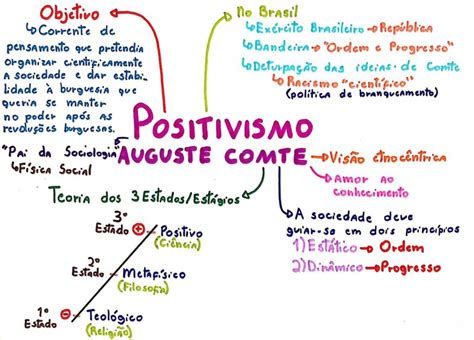 Objetivo
↳Corrente de
pensamento que pretendia
organizar cientificamente
a sociedade e dar estabi-
lidade à burguesia que
queria se manter
no poder após as
revoluções burguesas.
No Brasil
↳Exército Brasileiro→República
↳Bandeira→"Ordem e Progresso"
↳Deturpação das ideias de Comte
↳Racismo "científico"
(política de branqueamento)
POSITIVISMO
AUGUSTE COMTE
"Pai da Sociologia"
↳Física Social
→Visão etnocêntrica
→Amor ao
conhecimento
Teoria dos 3 Estados/Estágios
3º
Estado + Positivo
(Ciência)
2º
Estado Metafísico
(Filosofia)
1º
Estado - Teológico
(Religião)
→A sociedade deve
guiar-se em dois princípios
1) Estático→Ordem
2) Dinâmico→Progresso